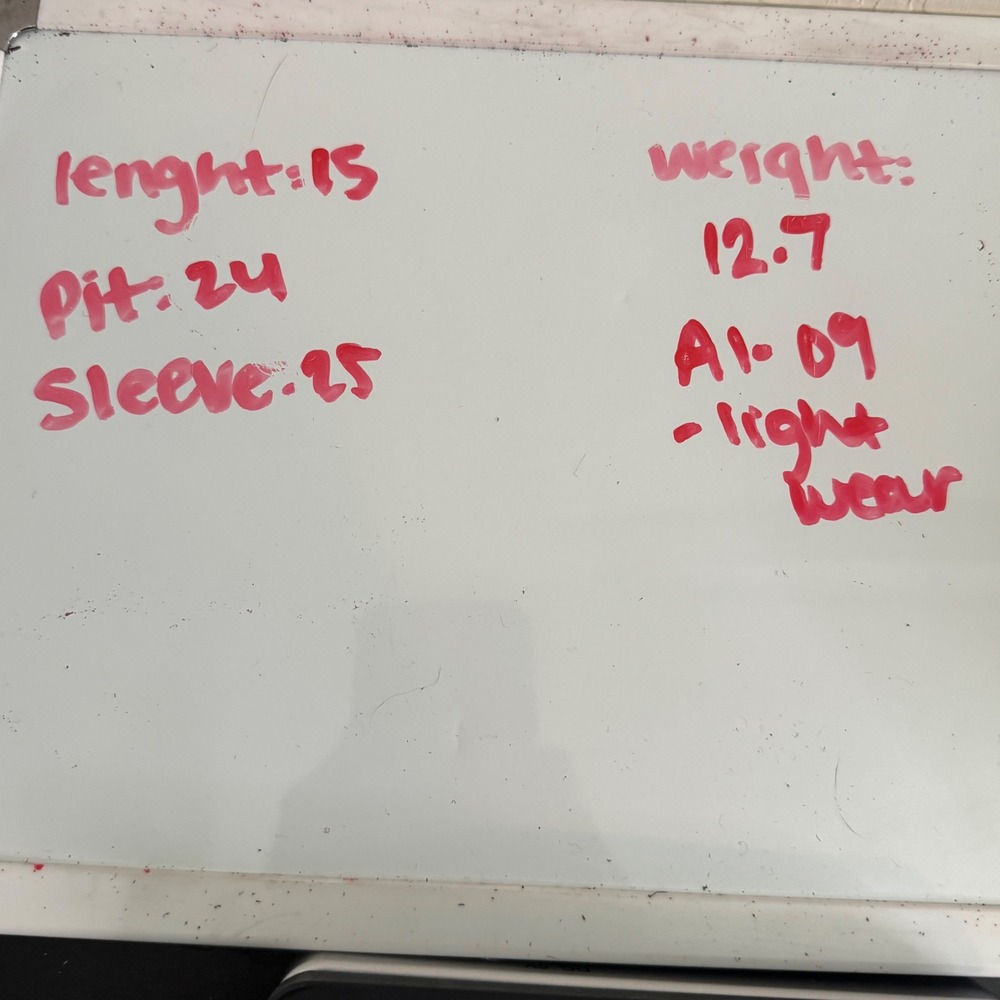 lenght: 15
Pit: 24
Sleeve. 25
weight:
12.7
A1. 09
- light
wear